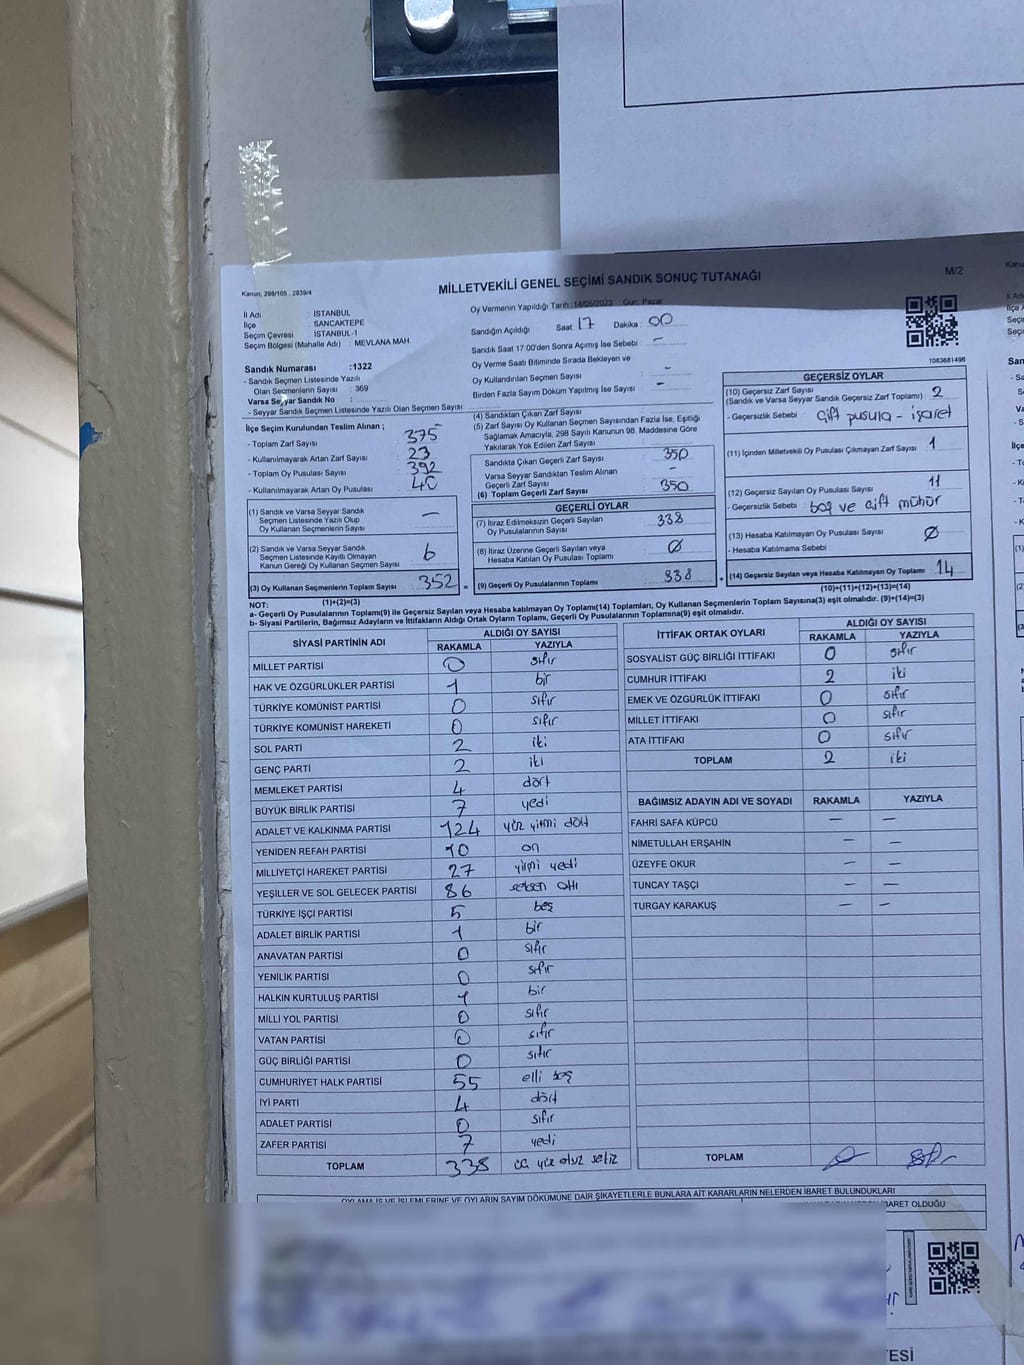 MİLLETVEKİLİ GENEL SEÇİMİ SANDIK SONUÇ TUTANAĞI
M/2
Kanun: 298/105 , 2839/4
İl Adı : İSTANBUL
İlçe : SANCAKTEPE
Seçim Çevresi : İSTANBUL-1
Seçim Bölgesi (Mahalle Adı) : MEVLANA MAH.
Sandık Numarası :1322
- Sandık Seçmen Listesinde Yazılı
Olan Seçmenlerin Sayısı : 369
Varsa Seyyar Sandık No :
- Seyyar Sandık Seçmen Listesinde Yazılı Olan Seçmen Sayısı
Oy Vermenin Yapıldığı Tarih :14/05/2023 Gün: Pazar
Sandığın Açıldığı Saat 17 Dakika : 00
Sandık Saat 17:00'den Sonra Açılmış İse Sebebi : -
Oy Verme Saati Bitiminde Sırada Bekleyen ve
Oy Kullandırılan Seçmen Sayısı : -
Birden Fazla Sayım Döküm Yapılmış İse Sayısı : -
1083681498
İlçe Seçim Kurulundan Teslim Alınan ;
- Toplam Zarf Sayısı 375
- Kullanılmayarak Artan Zarf Sayısı 23
- Toplam Oy Pusulası Sayısı 392
- Kullanılmayarak Artan Oy Pusulası 40
(1) Sandık ve Varsa Seyyar Sandık
Seçmen Listesinde Yazılı Olup
Oy Kullanan Seçmenlerin Sayısı -
(2) Sandık ve Varsa Seyyar Sandık
Seçmen Listesinde Kayıtlı Olmayan
Kanun Gereği Oy Kullanan Seçmen Sayısı 6
(3) Oy Kullanan Seçmenlerin Toplam Sayısı 352 =
(4) Sandıktan Çıkan Zarf Sayısı
(5) Zarf Sayısı Oy Kullanan Seçmen Sayısından Fazla İse, Eşitliği
Sağlamak Amacıyla, 298 Sayılı Kanunun 98. Maddesine Göre
Yakılarak Yok Edilen Zarf Sayısı
Sandıkta Çıkan Geçerli Zarf Sayısı 350
Varsa Seyyar Sandıktan Teslim Alınan
Geçerli Zarf Sayısı -
(6) Toplam Geçerli Zarf Sayısı 350
GEÇERLİ OYLAR
(7) İtiraz Edilmeksizin Geçerli Sayılan
Oy Pusulalarının Sayısı 338
(8) İtiraz Üzerine Geçerli Sayılan veya
Hesaba Katılan Oy Pusulası Toplamı Ø
(9) Geçerli Oy Pusulalarının Toplamı 338 +
GEÇERSİZ OYLAR
(10) Geçersiz Zarf Sayısı
(Sandık ve Varsa Seyyar Sandık Geçersiz Zarf Toplamı) 2
- Geçersizlik Sebebi : Çift pusula - işaret
(11) İçinden Milletvekili Oy Pusulası Çıkmayan Zarf Sayısı 1
(12) Geçersiz Sayılan Oy Pusulası Sayısı 11
- Geçersizlik Sebebi : boş ve çift mühür
(13) Hesaba Katılmayan Oy Pusulası Sayısı Ø
- Hesaba Katılmama Sebebi :
(14) Geçersiz Sayılan veya Hesaba Katılmayan Oy Toplamı 14
NOT: (1)+(2)=(3) (10)+(11)+(12)+(13)=(14)
a- Geçerli Oy Pusulalarının Toplamı(9) ile Geçersiz Sayılan veya Hesaba katılmayan Oy Toplamı(14) Toplamları, Oy Kullanan Seçmenlerin Toplam Sayısına(3) eşit olmalıdır. (9)+(14)=(3)
b- Siyasi Partilerin, Bağımsız Adayların ve İttifakların Aldığı Ortak Oyların Toplamı, Geçerli Oy Pusulalarının Toplamına(9) eşit olmalıdır.
SİYASİ PARTİNİN ADI ALDIĞI OY SAYISI
RAKAMLA YAZIYLA
MİLLET PARTİSİ 0 sıfır
HAK VE ÖZGÜRLÜKLER PARTİSİ 1 bir
TÜRKİYE KOMÜNİST PARTİSİ 0 sıfır
TÜRKİYE KOMÜNİST HAREKETİ 0 sıfır
SOL PARTİ 2 iki
GENÇ PARTİ 2 iki
MEMLEKET PARTİSİ 4 dört
BÜYÜK BİRLİK PARTİSİ 7 yedi
ADALET VE KALKINMA PARTİSİ 124 yüz yirmi dört
YENİDEN REFAH PARTİSİ 10 on
MİLLİYETÇİ HAREKET PARTİSİ 27 yirmi yedi
YEŞİLLER VE SOL GELECEK PARTİSİ 86 seksen altı
TÜRKİYE İŞÇİ PARTİSİ 5 beş
ADALET BİRLİK PARTİSİ 1 bir
ANAVATAN PARTİSİ 0 sıfır
YENİLİK PARTİSİ 0 sıfır
HALKIN KURTULUŞ PARTİSİ 1 bir
MİLLİ YOL PARTİSİ 0 sıfır
VATAN PARTİSİ 0 sıfır
GÜÇ BİRLİĞİ PARTİSİ 0 sıfır
CUMHURİYET HALK PARTİSİ 55 elli beş
İYİ PARTİ 4 dört
ADALET PARTİSİ 0 sıfır
ZAFER PARTİSİ 7 yedi
TOPLAM 338 üç yüz otuz sekiz
İTTİFAK ORTAK OYLARI ALDIĞI OY SAYISI
RAKAMLA YAZIYLA
SOSYALİST GÜÇ BİRLİĞİ İTTİFAKI 0 sıfır
CUMHUR İTTİFAKI 2 iki
EMEK VE ÖZGÜRLÜK İTTİFAKI 0 sıfır
MİLLET İTTİFAKI 0 sıfır
ATA İTTİFAKI 0 sıfır
TOPLAM 2 iki
BAĞIMSIZ ADAYIN ADI VE SOYADI RAKAMLA YAZIYLA
FAHRİ SAFA KÜPCÜ - -
NİMETULLAH ERŞAHİN - -
ÜZEYFE OKUR - -
TUNCAY TAŞÇI - -
TURGAY KARAKUŞ - -
TOPLAM Ø sıfır
OYLAMA İŞ VE İŞLEMLERİNE VE OYLARIN SAYIM DÖKÜMÜNE DAİR ŞİKAYETLERLE BUNLARA AİT KARARLARIN NELERDEN İBARET BULUNDUKLARI
İBARET OLDUĞU